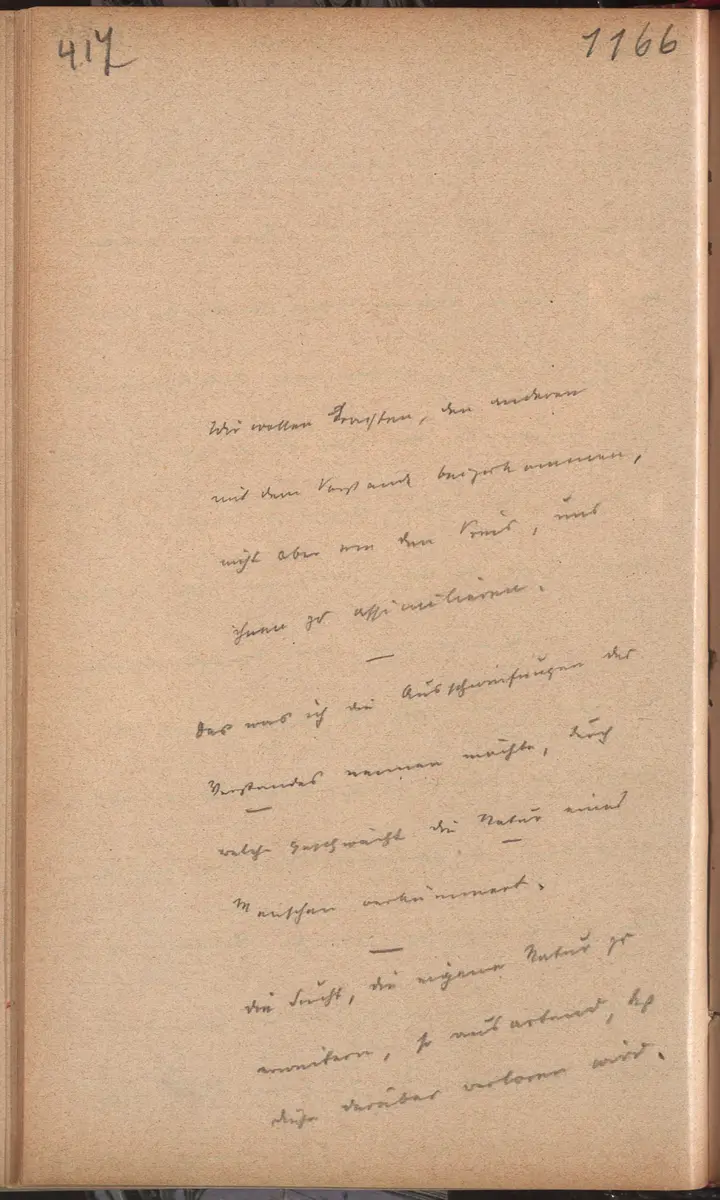 417
1166
Wir wollen trachten, den anderen
mit dem Verstande beizukommen,
nicht aber um den Preis, uns
ihnen zu assimilieren.
Das was ich die Ausschweifungen des
Verstandes nennen möchte, durch
welche geschwächt die Natur eines
Menschen verkümmert.
Die Sucht, die eigene Natur zu
erweitern, so ausartend, daß
diese darüber verloren wird.